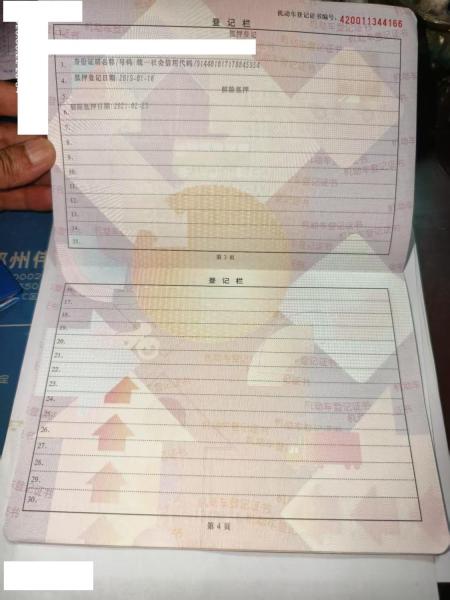 机动车登记证书编号：420011344166
登记栏
1.
抵押登记
3. 身份证明名称/号码:统一社会信用代码/
4. 抵押登记日期:2019-01-16
5. 解除抵押
6. 解除抵押日期:2021-02-25
7.
8.
9.
10.
11.
12.
13.
14.
15.
第3页
登记栏
16.
17.
18.
19.
20.
21.
22.
23.
24.
25.
26.
27.
28.
29.
30.
第4页